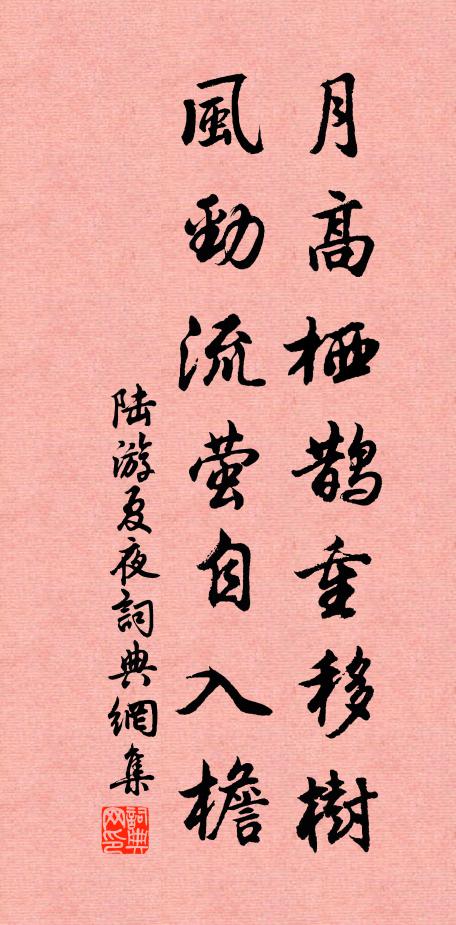 月高栖鵲重移樹
風勁流萤自入檐
陆游夏夜詞典網集
詞典网印